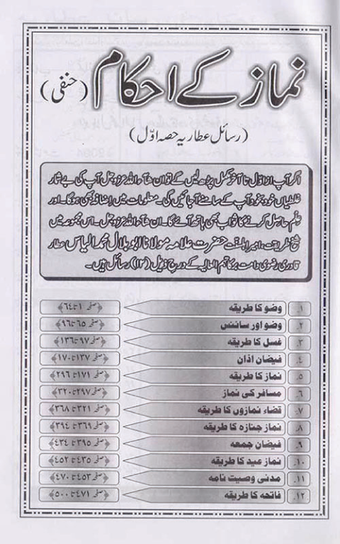 نماز کے احکام (حنفی)
(رسائل عطاریہ حصہ اوّل)
اگر آپ از اوّل تا آخر مکمل پڑھ لیں گے تو ان شاء اللہ عزوجل آپ کی بے شمار
غلطیاں خود بخود آپ کے سامنے آجائیں گی، معلومات میں اضافہ بھی ہوگا۔ اور
علم حاصل کرنے کا ثواب بھی ہاتھ آئے گا۔ ان شاء اللہ عزوجل۔ اس مجموعہ میں
شیخ طریقت، امیر اہلسنت حضرت علامہ مولانا ابو بلال محمد الیاس عطار
قادری رضوی دامت برکاتہم العالیہ کے درج ذیل (۱۲) رسائل ہیں۔
۱۔ وضو کا طریقہ ﴿صفحہ ۱ تا ۶۴﴾
۲۔ وضو اور سائنس ﴿صفحہ ۶۵ تا ۹۶﴾
۳۔ غسل کا طریقہ ﴿صفحہ ۹۷ تا ۱۳۶﴾
۴۔ فیضان اذان ﴿صفحہ ۱۳۷ تا ۱۷۰﴾
۵۔ نماز کا طریقہ ﴿صفحہ ۱۷۱ تا ۲۹۶﴾
۶۔ مسافر کی نماز ﴿صفحہ ۲۹۷ تا ۳۲۰﴾
۷۔ قضاء نمازوں کا طریقہ ﴿صفحہ ۳۲۱ تا ۳۶۸﴾
۸۔ نماز جنازہ کا طریقہ ﴿صفحہ ۳۶۹ تا ۳۹۴﴾
۹۔ فیضان جمعہ ﴿صفحہ ۳۹۵ تا ۴۳۴﴾
۱۰۔ نماز عید کا طریقہ ﴿صفحہ ۴۳۵ تا ۴۵۲﴾
۱۱۔ مدنی وصیت نامہ ﴿صفحہ ۴۵۳ تا ۴۷۰﴾
۱۲۔ فاتحہ کا طریقہ ﴿صفحہ ۴۷۱ تا ۵۰۰﴾